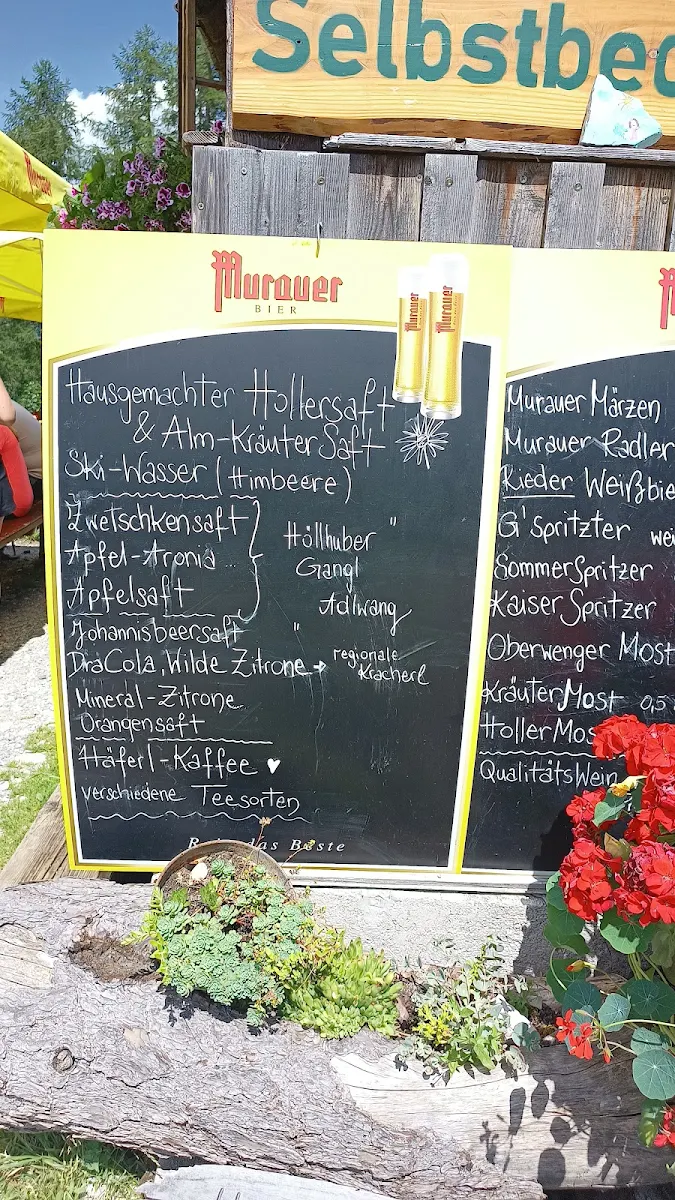 Selbstbed
Murauer
BIER
Murauer
Murauer
Murauer
Hausgemachter Hollersaft
& Alm-Kräuter Saft
Ski-Wasser (Himbeere)
Zwetschkensaft
Apfel-Aronia
Apfelsaft
Höllhuber "
Gangl
Adlwang
Johannisbeersaft "
DraCola, Wilde Zitrone → regionale
Kracherl
Mineral-Zitrone
Orangensaft
Häferl-Kaffee ♥
verschiedene Teesorten
das Beste
Murauer Märzen
Murauer Radler
Rieder Weißbie
G'spritzter wei
SommerSpritzer
KaiserSpritzer
Oberwenger Most
KräuterMost 0,5
HollerMos
QualitätsWein